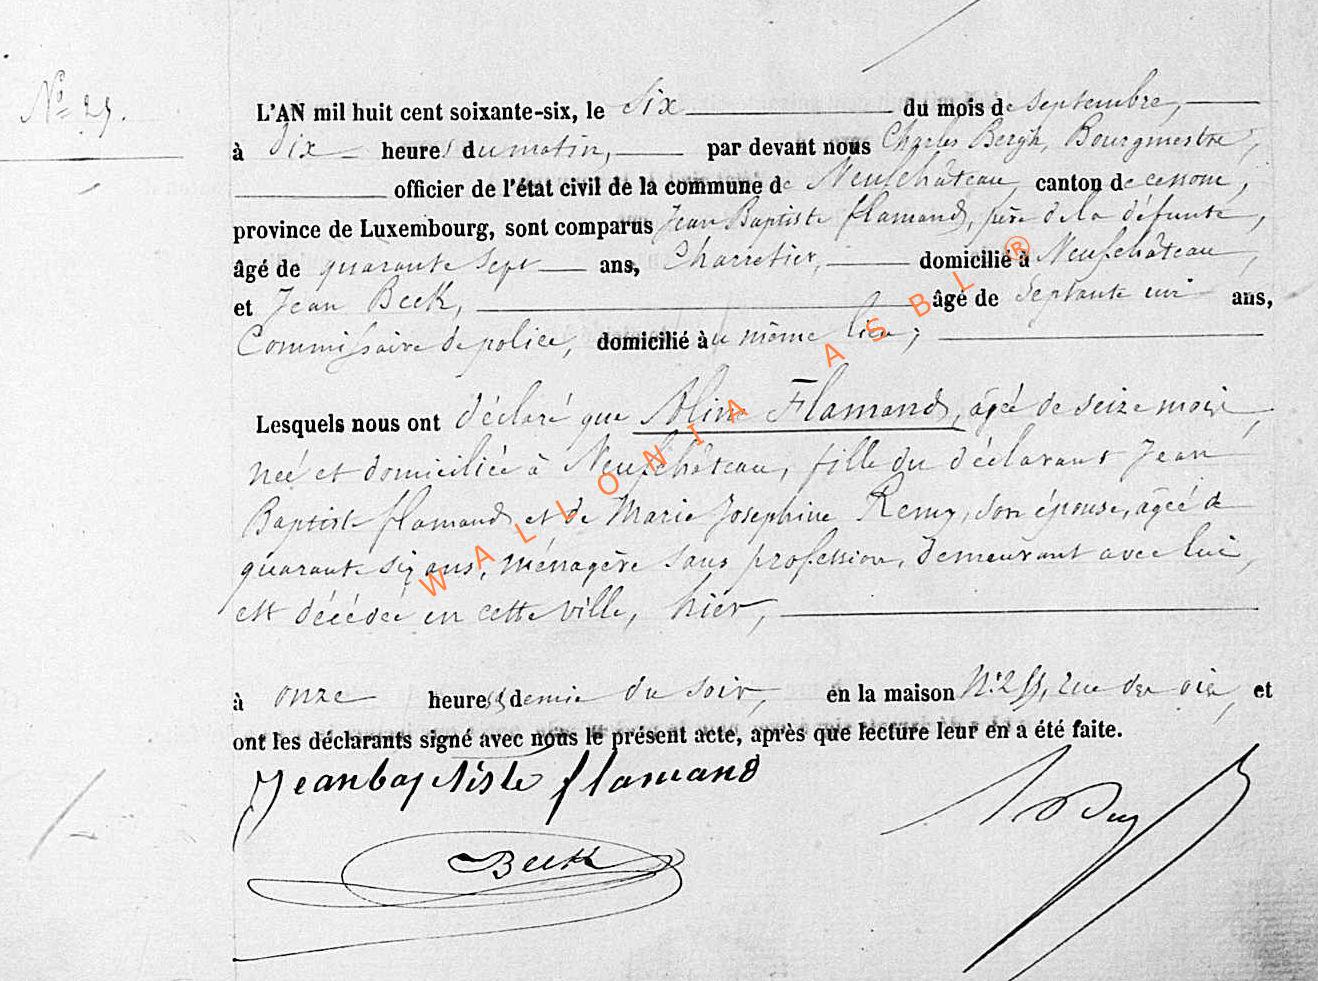 N° 29.
L'AN mil huit cent soixante-six, le six du mois de septembre,
à dix heures du matin, par devant nous Charles Bergh, Bourgmestre,
officier de l'état civil de la commune de Neufchâteau, canton de ce nom,
province de Luxembourg, sont comparus Jean Baptiste flamand, père de la défunte,
âgé de quarante sept ans, Charretier, domicilié à Neufchâteau,
et Jean Beck, âgé de septante un ans,
Commissaire de police, domicilié au même lieu;
Lesquels nous ont déclaré que Aline Flamand, âgée de seize mois,
née et domiciliée à Neufchâteau, fille du déclarant Jean
Baptiste flamand et de Marie Josephine Remy, son épouse, âgée de
quarante six ans, ménagère sans profession, demeurant avec lui,
est décédée en cette ville, hier,
à onze heures demie du soir, en la maison N° rue et
ont les déclarants signé avec nous le présent acte, après que lecture leur en a été faite.
Jeanbaptiste flamand
Beck
WALLONIA ASBL ®